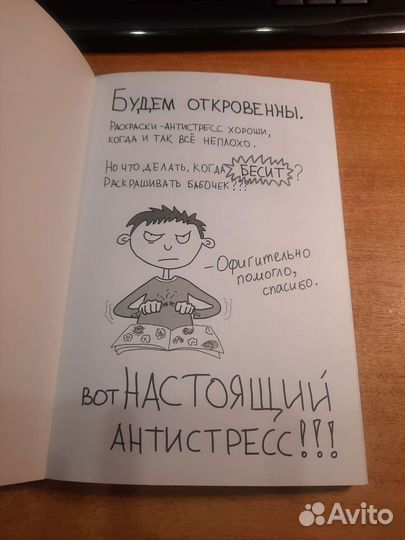 Будем откровенны.
Раскраски-антистресс хороши,
когда и так всё неплохо.
Но что делать, когда БЕСИТ?
раскрашивать бабочек???
- Офигительно
помогло,
спасибо.
вот НАСТОЯЩИЙ
АНТИСТРЕСС!!!
Avito